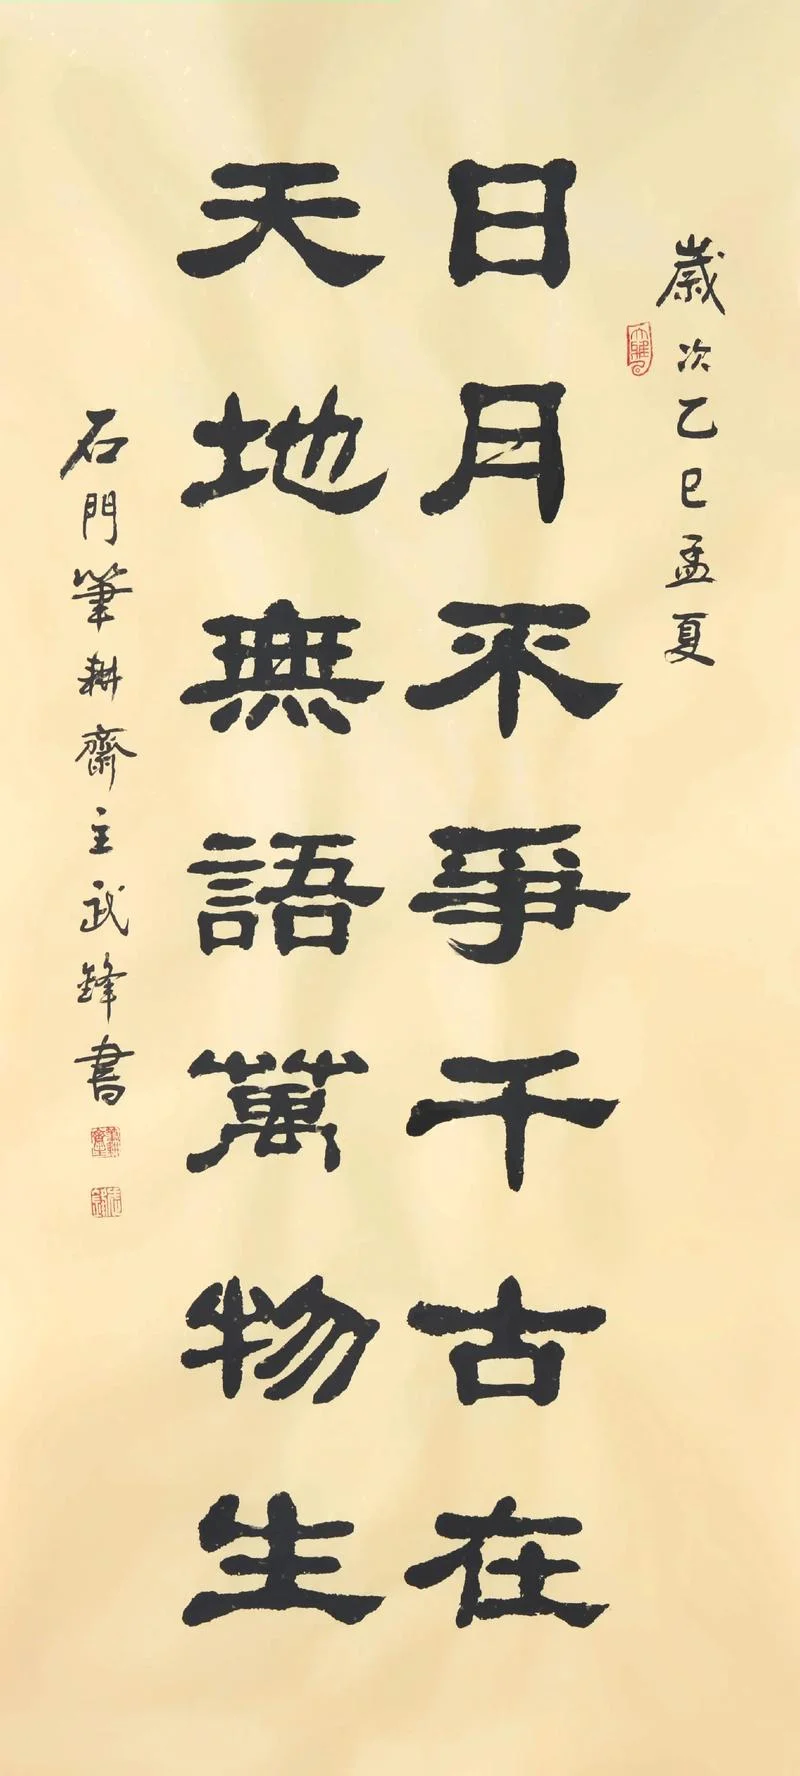 歲次乙巳孟夏
日月不爭千古在
天地無語萬物生
石門筆耕齋主武鋒書